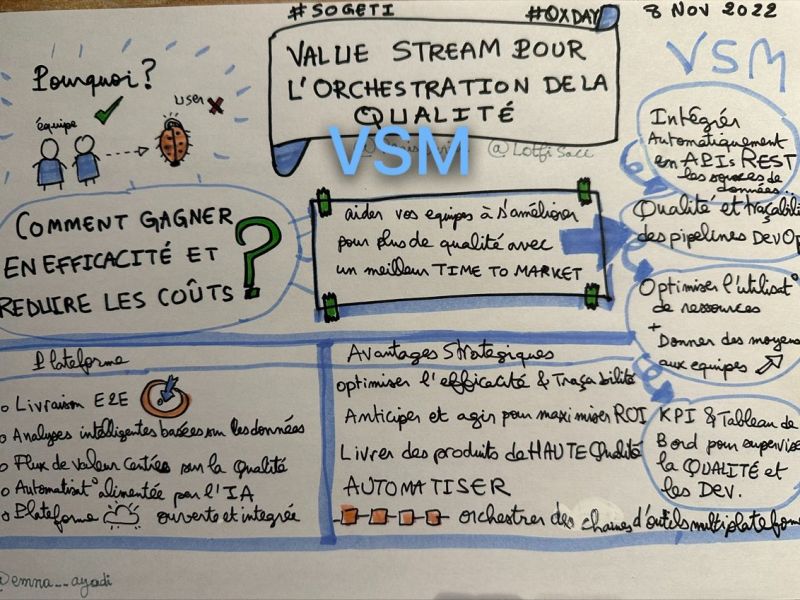 #SOGETI
#QXDAY
8 NOV 2022
VALUE STREAM POUR
L'ORCHESTRATION DE LA
QUALITÉ
VSM
@Lotfi Sall
VSM
Pourquoi?
équipe
user
COMMENT GAGNER
EN EFFICACITÉ ET
REDUIRE LES COÛTS ?
aider vos equipes à s'améliorer
pour plus de qualité avec
un meilleur TIME TO MARKET
Intégrér
Automatiquement
en APIs REST
les sources de
données...
Qualité et traçabili
des pipelines DevOp
Optimiser l'utilisat°
de ressources
+
Donner des moyens
aux equipes
KPI & Tableau de
Bord pour supervise
la QUALITÉ et
les DEV.
Plateforme
o Livraison E2E
o Analyses intelligentes basées sur les données
o Flux de valeur centrés sur la Qualité
o Automatisat° alimentée par l'IA
o Plateforme ouverte et integrée
Avantages Stratégiques
optimiser l'efficacité & Traçabilité
Anticiper et agir pour maximiser ROI
Livrer des produits de HAUTE Qualité
AUTOMATISER
orchestrer des chaines d'outils multiplateforme
@emna__ayadi